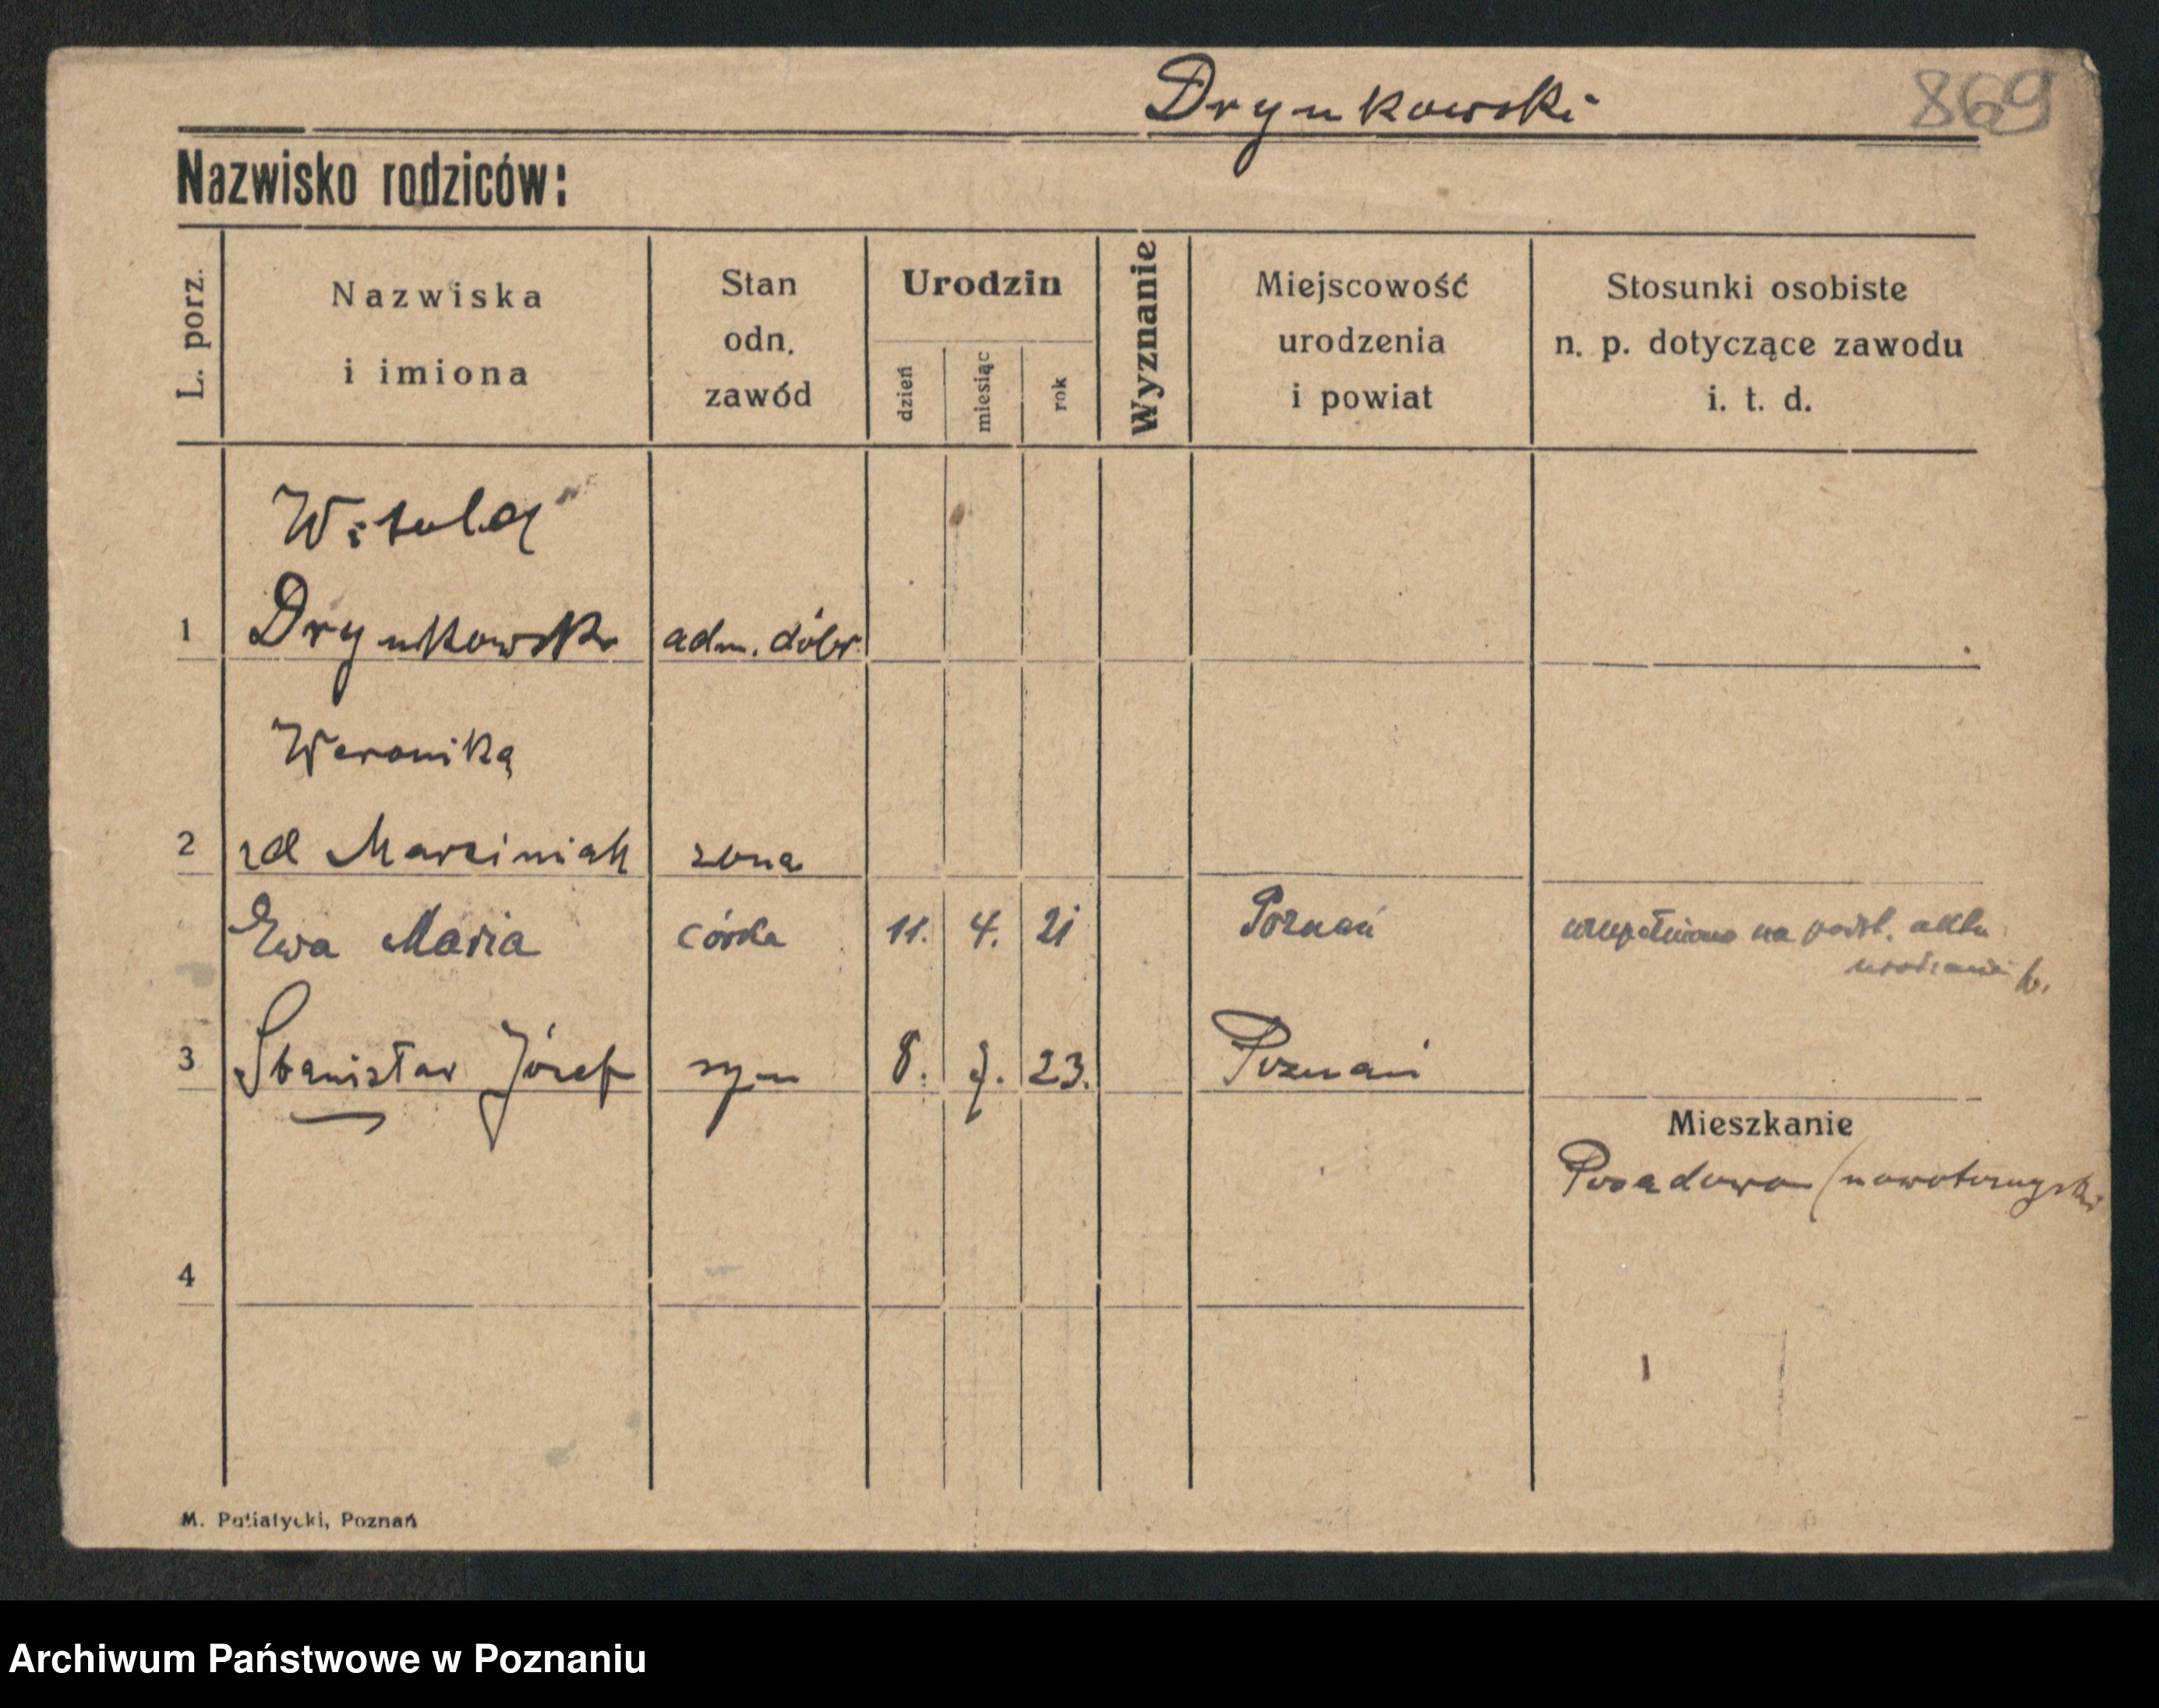 Drynkowski
869
Nazwisko rodziców:
L. porz.
Nazwiska
i imiona
Stan
odn.
zawód
Urodzin
dzień
miesiąc
rok
Wyznanie
Miejscowość
urodzenia
i powiat
Stosunki osobiste
n. p. dotyczące zawodu
i. t. d.
1
Drynkowski adm. dóbr
Weronika
2 Marciniak żona
Ewa Maria córka 11. 4. 21 Poznań uzupełniono na podst. aktu
urodzenia
3 Stanisław Józef syn 8. 9. 23. Poznań
Mieszkanie
Posadowo (nowotomyski
4
M. Putiatycki, Poznań
Archiwum Państwowe w Poznaniu